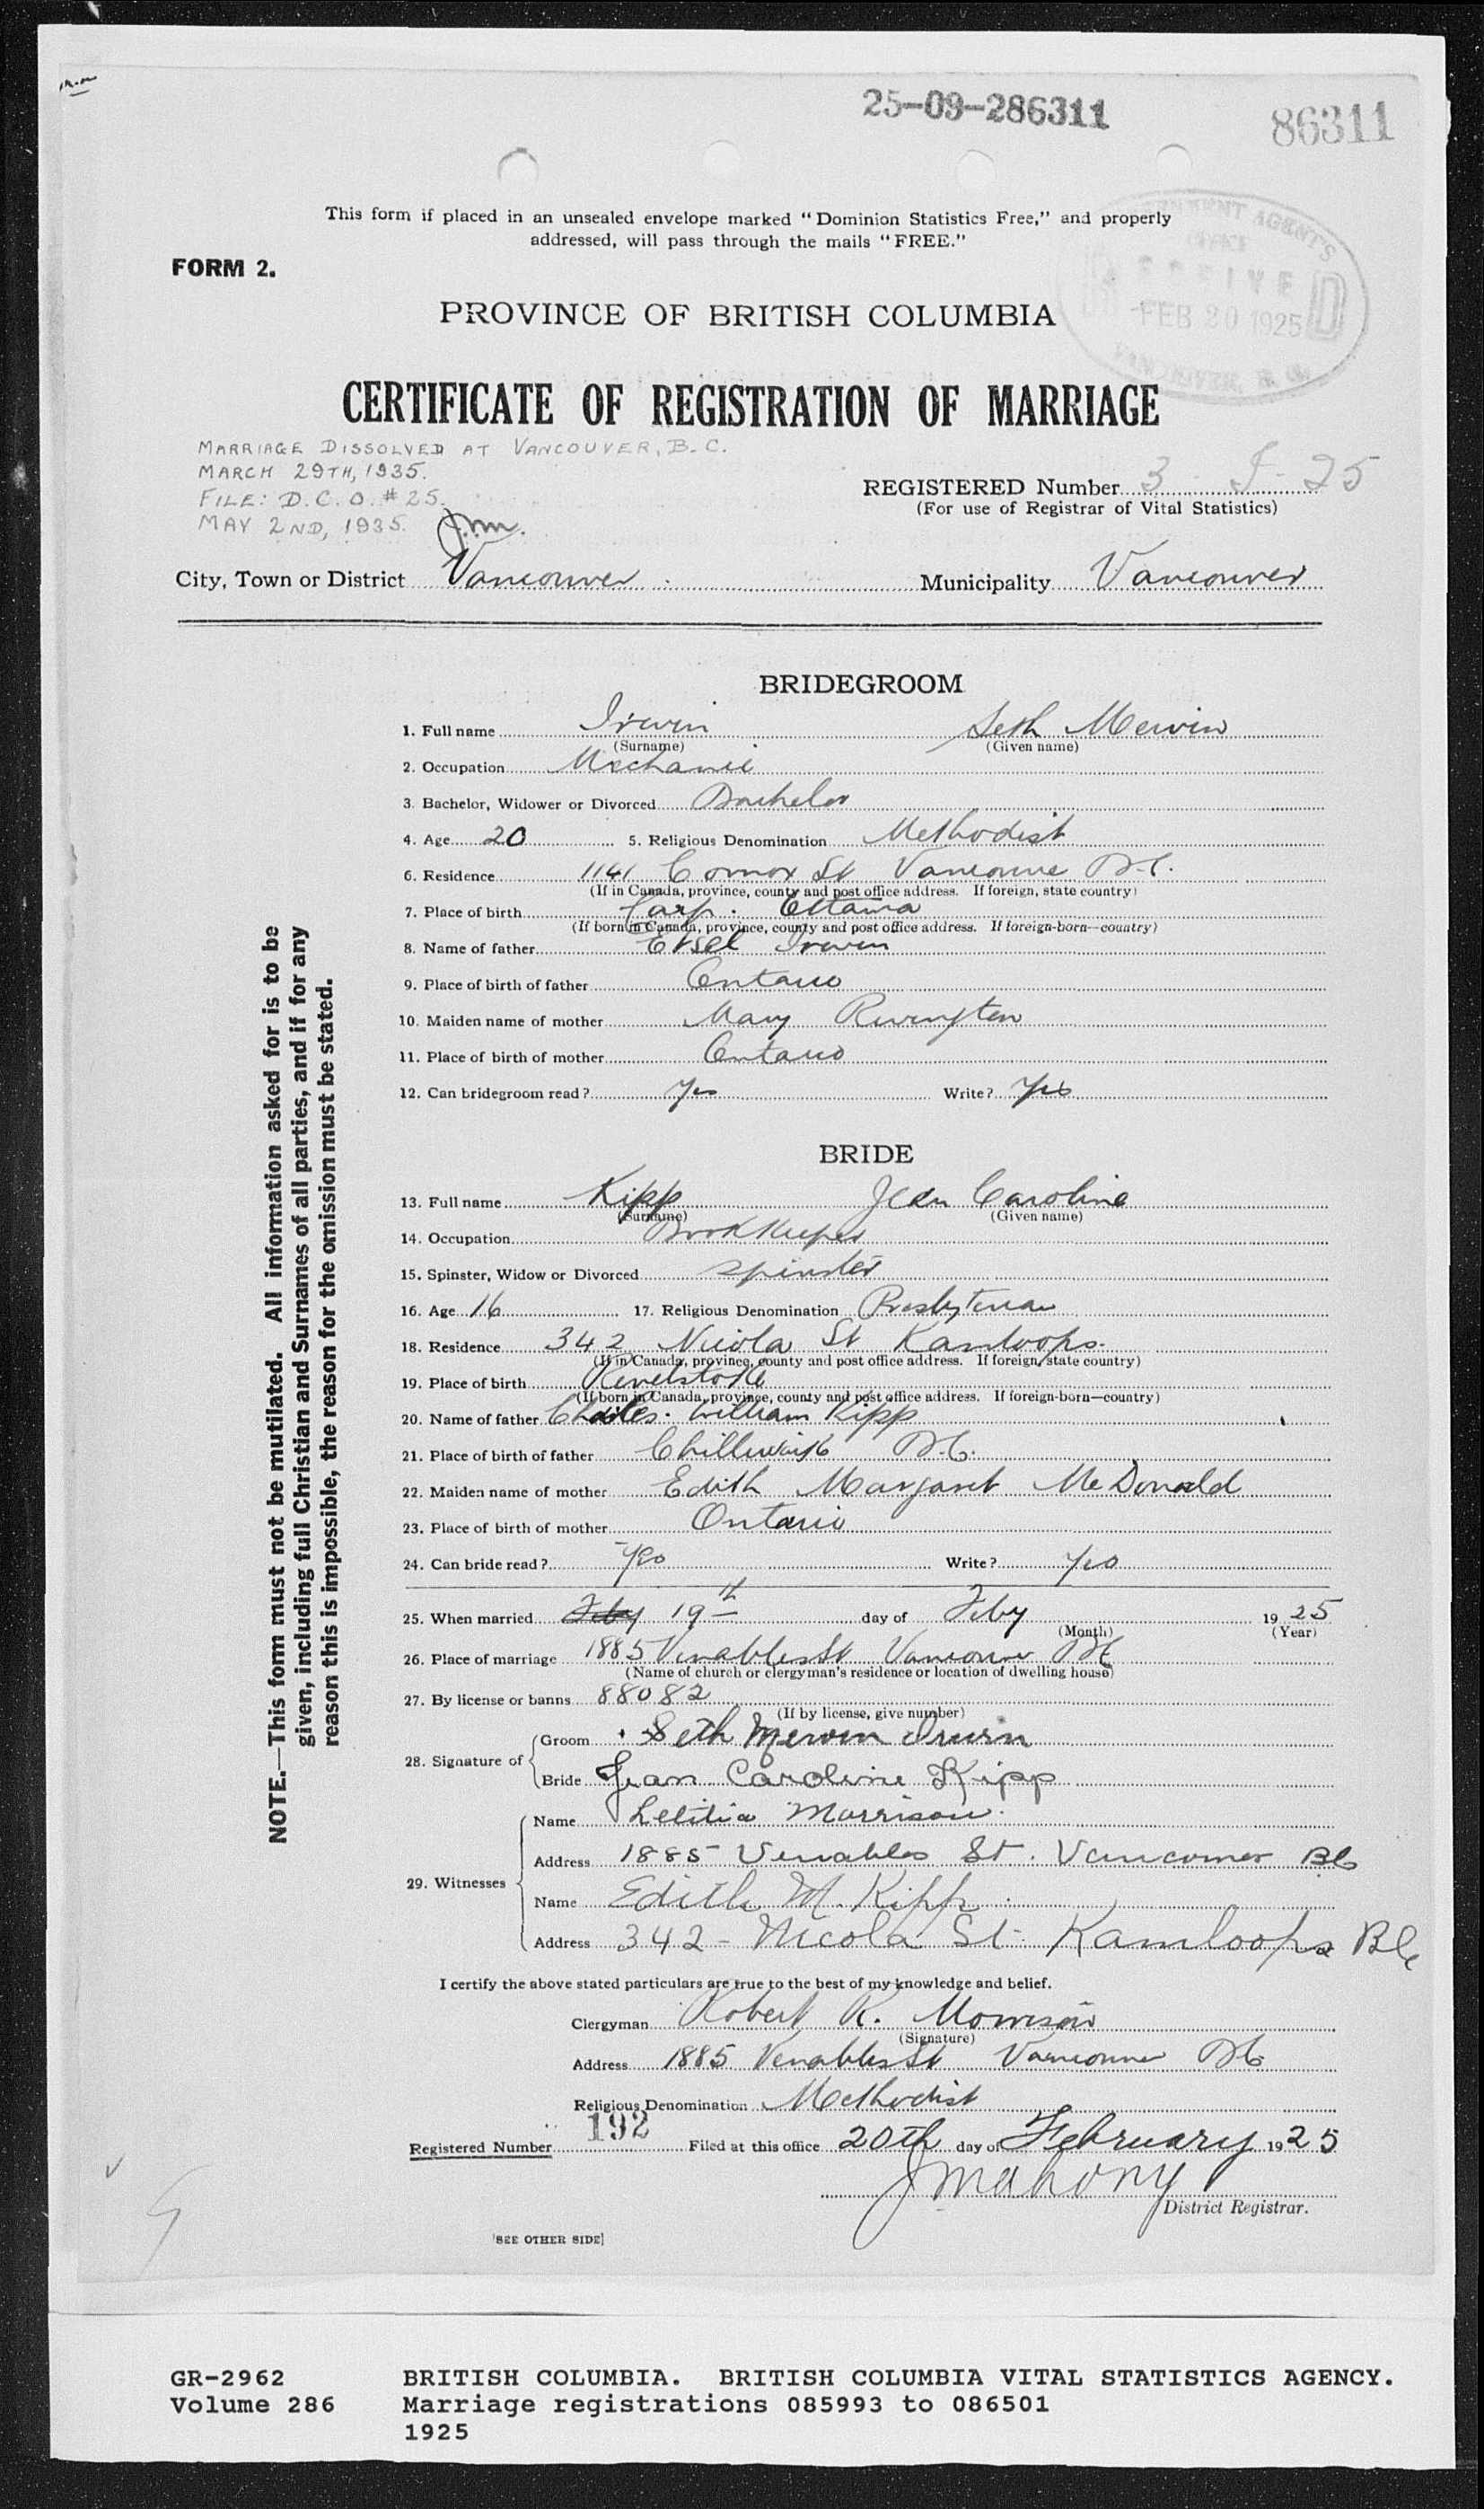 25-09-286311
86311
This form if placed in an unsealed envelope marked "Dominion Statistics Free," and properly
addressed, will pass through the mails "FREE."
FORM 2.
GOVERNMENT AGENT'S
OFFICE
RECEIVED
FEB 20 1925
VANCOUVER, B. C.
PROVINCE OF BRITISH COLUMBIA
CERTIFICATE OF REGISTRATION OF MARRIAGE
MARRIAGE DISSOLVED AT VANCOUVER, B.C.
MARCH 29TH, 1935.
FILE: D.C.O. #25.
MAY 2ND, 1935.
REGISTERED Number 3 25
(For use of Registrar of Vital Statistics)
City, Town or District Vancouver Municipality Vancouver
BRIDEGROOM
1. Full name Irwin Seth Mervin
(Surname) (Given name)
2. Occupation Mechanic
3. Bachelor, Widower or Divorced Bachelor
4. Age 20 5. Religious Denomination Methodist
6. Residence 1141 Comox St Vancouver B.C.
(If in Canada, province, county and post office address. If foreign, state country)
7. Place of birth Carp. Ottawa
(If born in Canada, province, county and post office address. If foreign-born—country)
8. Name of father Irwin
9. Place of birth of father Ontario
10. Maiden name of mother Mary Rivington
11. Place of birth of mother Ontario
12. Can bridegroom read? Yes Write? Yes
BRIDE
13. Full name Kipp Jean Caroline
(Surname) (Given name)
14. Occupation Bookkeeper
15. Spinster, Widow or Divorced Spinster
16. Age 16 17. Religious Denomination Presbyterian
18. Residence 342 Nicola St Kamloops.
(If in Canada, province, county and post office address. If foreign, state country)
19. Place of birth Revelstoke
(If born in Canada, province, county and post office address. If foreign-born—country)
20. Name of father Charles William Kipp
21. Place of birth of father Chilliwack B.C.
22. Maiden name of mother Edith Margaret McDonald
23. Place of birth of mother Ontario
24. Can bride read? Yes Write? Yes
25. When married Feby 19th day of Feby 1925
(Month) (Year)
26. Place of marriage 1885 Venables St Vancouver BC
(Name of church or clergyman's residence or location of dwelling house)
27. By license or banns 88082
(If by license, give number)
28. Signature of
Groom Seth Mervin Irwin
Bride Jean Caroline Kipp
29. Witnesses
Name Letitia Morrison
Address 1885 Venables St. Vancouver BC
Name Edith M. Kipp
Address 342 - Nicola St Kamloops BC
I certify the above stated particulars are true to the best of my knowledge and belief.
Clergyman Robert R. Morrison
(Signature)
Address 1885 Venables St Vancouver BC
Religious Denomination Methodist
Registered Number 192 Filed at this office 20th day of February 1925
J Mahony
District Registrar.
[SEE OTHER SIDE]
NOTE.—This form must not be mutilated. All information asked for is to be
given, including full Christian and Surnames of all parties, and if for any
reason this is impossible, the reason for the omission must be stated.
GR-2962 BRITISH COLUMBIA. BRITISH COLUMBIA VITAL STATISTICS AGENCY.
Volume 286 Marriage registrations 085993 to 086501
1925